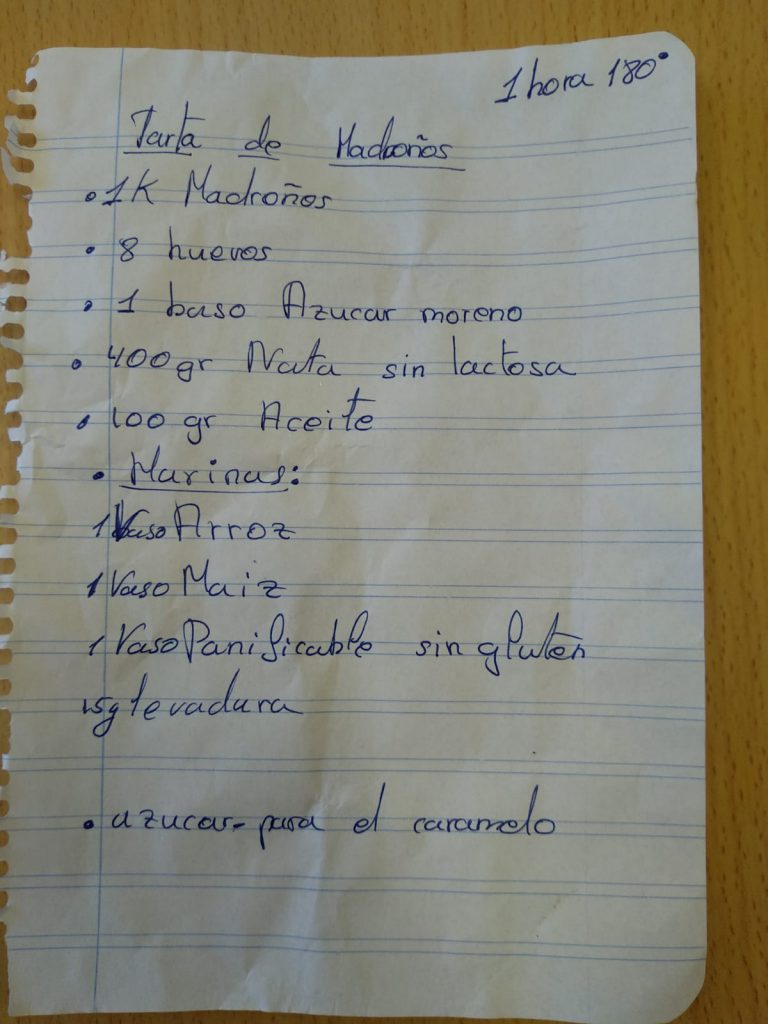 1 hora 180°
Tarta de Madroños
• 1K Madroños
• 8 huevos
• 1 baso Azucar moreno
• 400gr Nata sin lactosa
• 100 gr Aceite
• Harinas:
1 Vaso Arroz
1 Vaso Maiz
1 Vaso Panificable sin gluten
15g levadura
• azucar-para el caramelo